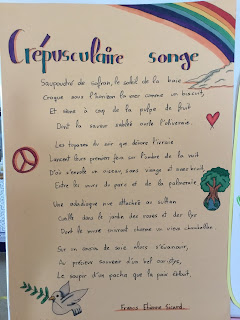 Crépusculaire songe
Saupoudré de safran, le soleil de la baie
Croque sous l'horizon la mer comme un biscuit,
Et sème à cap de la pulpe de fruit
Dont la saveur sablée ourle l'oliveraie.
Les topazes du soir que dévore l'ivraie
Lancent leurs premiers feux sur l'ombre de la nuit
D'où s'envole un oiseau, sans visage et sans bruit,
Entre les murs du parc et de la palmeraie.
Une odalisque rive attachée au sultan
Cueille dans le jardin des roses et des lys
Dont le murmure charme un vieux chambellan
Sur un coussin de soie alors s'évanouir,
Au précieux souvenir d'un bel
Le soupir d'un pacha que la paix éblouit.
Francis Etienne Sicard